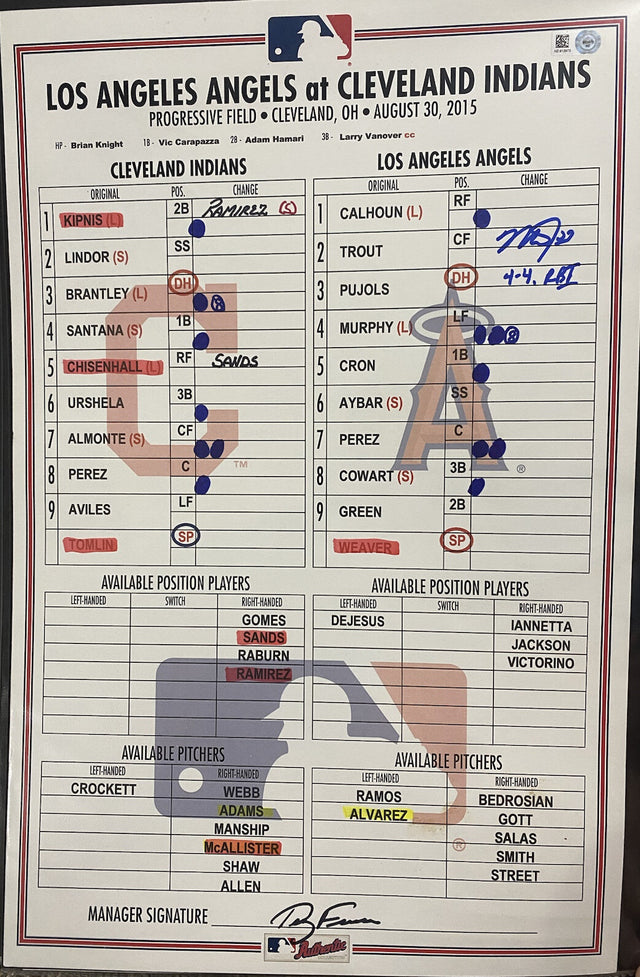 LOS ANGELES ANGELS at CLEVELAND INDIANS
PROGRESSIVE FIELD • CLEVELAND, OH • AUGUST 30, 2015
HP - Brian Knight 1B - Vic Carapazza 2B - Adam Hamari 3B - Larry Vanover cc
CLEVELAND INDIANS
ORIGINAL POS. CHANGE
1 KIPNIS (L) 2B RAMIREZ (S)
2 LINDOR (S) SS
3 BRANTLEY (L) DH
4 SANTANA (S) 1B
5 CHISENHALL (L) RF SANDS
6 URSHELA 3B
7 ALMONTE (S) CF
8 PEREZ C
9 AVILES LF
TOMLIN SP
LOS ANGELES ANGELS
ORIGINAL POS. CHANGE
1 CALHOUN (L) RF
2 TROUT CF 27
3 PUJOLS DH 4-4, RBI
4 MURPHY (L) LF
5 CRON 1B
6 AYBAR (S) SS
7 PEREZ C
8 COWART (S) 3B
9 GREEN 2B
WEAVER SP
AVAILABLE POSITION PLAYERS
LEFT-HANDED SWITCH RIGHT-HANDED
GOMES
SANDS
RABURN
RAMIREZ
AVAILABLE POSITION PLAYERS
LEFT-HANDED SWITCH RIGHT-HANDED
DEJESUS IANNETTA
JACKSON
VICTORINO
AVAILABLE PITCHERS
LEFT-HANDED RIGHT-HANDED
CROCKETT WEBB
ADAMS
MANSHIP
McALLISTER
SHAW
ALLEN
AVAILABLE PITCHERS
LEFT-HANDED RIGHT-HANDED
RAMOS BEDROSIAN
ALVAREZ GOTT
SALAS
SMITH
STREET
MANAGER SIGNATURE
Authentic